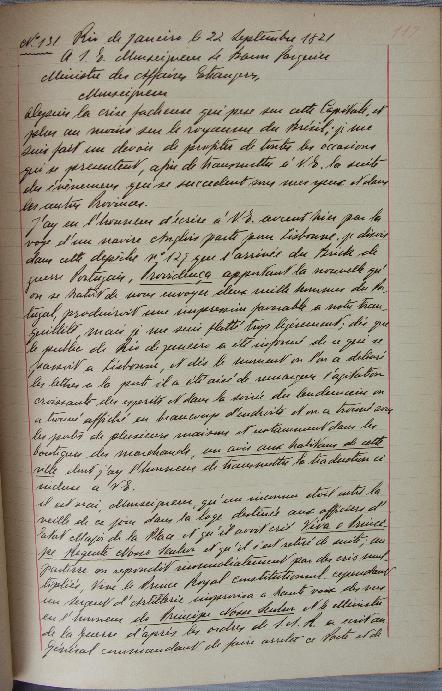 117
Nº 131 Rio de Janeiro le 22 Septembre 1821
A S. E. Monseigneur le Baron Pasquier
Ministre des Affaires Etrangers,
Monseigneur
Depuis la crise facheuse qui pese sur cette Capitale, et
plus au moins sur le royaume du Brésil; je me
suis fait un devoir de profiter de toutes les occasions
qui se presentent, afin de transmettre à V. E. la suite
des évènemens qui se succedent sous mes yeux et dans
les autres Provinces.
J'ay eu l'honneur d'écrire à V. E. avant hier par la
voye d'un navire Anglois parti pour Lisbonne. je disois
dans cette depêche nº 127 que l'arrivée du Brick de
guerre Portugais, Providença apportant la nouvelle qu'
on se hatoit de nous envoyer deux mille hommes de Por-
tugal, produiroit une impression favorable a notre tran-
quillité mais je me suis flatté trop legerement; dès que
le public de Rio de Janeiro a été informé de ce qui se
passoit a Lisbonne, et dès le moment ou l'on a delivré
les lettres a la poste il a été aisé de remarquer l'agitation
croissante des esprits et dans la soirée du lendemain on
a trouvé affiché en beaucoup d'endroits et on a trouvé sous
les portes de plusieurs maisons et notamment dans les
boutiques des marchands, un avis aux habitans de cette
ville dont j'ay l'honneur de transmettre la traduction ci
incluse a V. E.
il est vrai, Monseigneur, qu'un inconnu étoit entré la
veille de ce jour dans la loge destinée aux officiers d'
Etat Major de la Place et qu'il avoit crié Viva o Princi-
pe Regente Nosso Senhor et qu'il s'est retiré de suite; au
parterre on repondit immediatement par des cris mul-
tipliés, Vive le Prince Royal constitutionnel, cependant
un sergent d'Artillerie improvisa a haute voix des vers
en l'honneur do Principe Nosso Senhor et le Ministre
de la guerre d'après les ordres de S. A. R. a écrit au
Général commandant de faire arrêter ce Poete et de